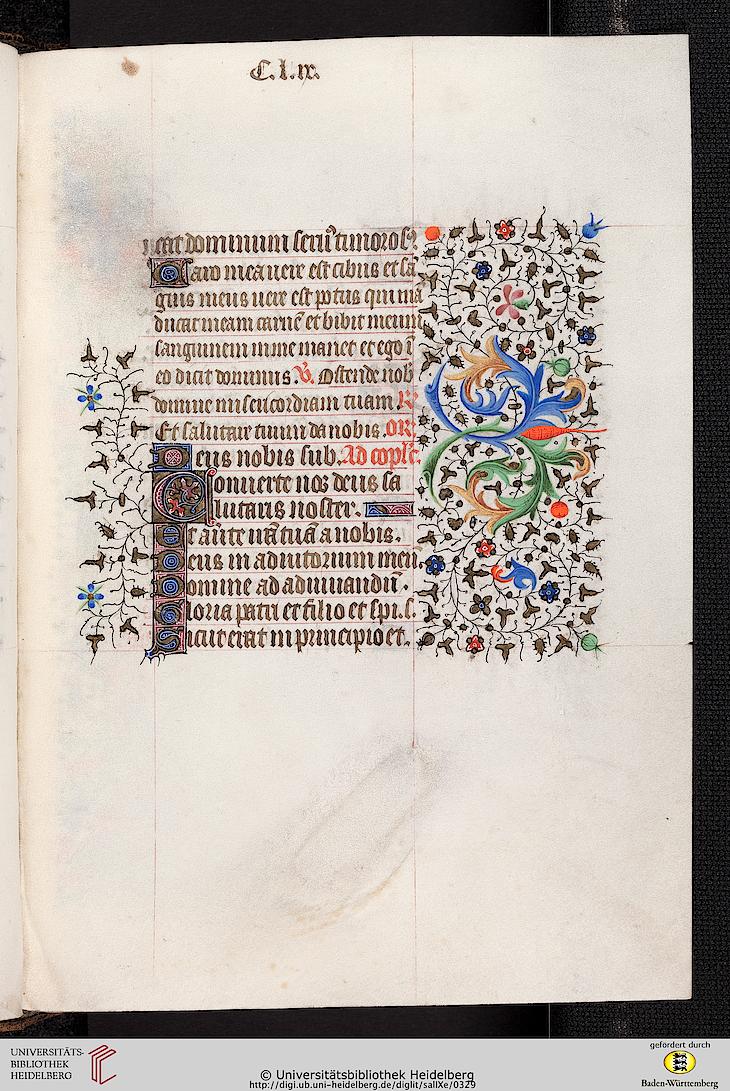 C.l.ix.
icat dominum seru᷒ timoros⁊.
Caro mea uere est cibus et sā
guis meus uere est potus qui mā
ducat meam carnē et bibit meum
sanguinem in me manet et ego ī
eo dicit dominus. V̄. Ostende nob
domine misericordiam tuam. R̄
Et salutare tuum da nobis. OR̄.
Deus nobis sub. Ad cōplet̄.
Conuerte nos deus sa
lutaris noster.
Et au̅te irā tuā a nobis.
Deus in adiutorium meū.
Domine ad adiuuandū.
Gloria patri et filio et spi. s.
Sicut erat in principio et.
UNIVERSITÄTS-
BIBLIOTHEK
HEIDELBERG
© Universitätsbibliothek Heidelberg
http://digi.ub.uni-heidelberg.de/diglit/salIXe/0329
gefördert durch
Baden-Württemberg